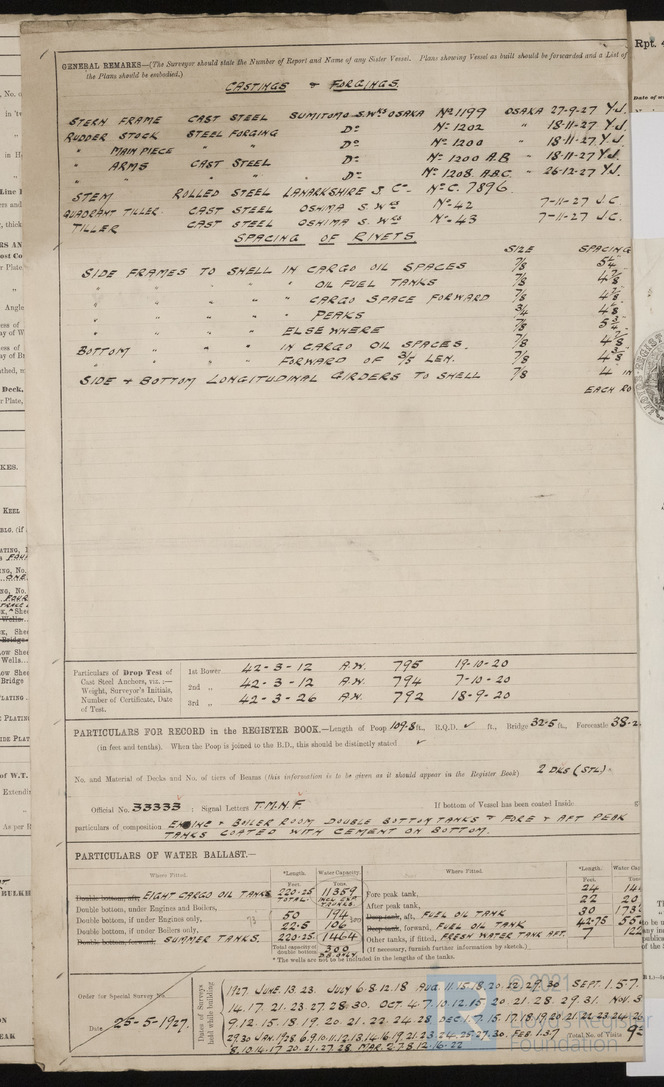 GENERAL REMARKS—(The Surveyor should state the Number of Report and Name of any Sister Vessel. Plans showing Vessel as built should be forwarded and a List of
the Plans should be embodied.)
CASTINGS & FORGINGS.
STERN FRAME CAST STEEL SUMITOMO S.Wks OSAKA No 1199 OSAKA 27-9-27 Y.J.
RUDDER STOCK STEEL FORGING Do No 1202 " 18-11-27 Y.J.
" MAIN PIECE " " Do No 1200 " 18-11-27 Y.J.
" ARMS CAST STEEL Do No 1200 A.B " 18-11-27 Y.J.
" " " " Do No 1208 A.B.C. " 26-12-27 Y.J.
STEM ROLLED STEEL LANARKSHIRE S. Co. No C. 7896.
QUADRANT TILLER CAST STEEL OSHIMA S. Wks No 42 7-11-27 J.C.
TILLER CAST STEEL OSHIMA S. Wks No 43 7-11-27 J.C.
SPACING OF RIVETS.
SIZE SPACING
SIDE FRAMES TO SHELL IN CARGO OIL SPACES 7/8 5 1/4"
" " " " " OIL FUEL TANKS 7/8 4 7/8"
" " " " " CARGO SPACE FORWARD 7/8 4 7/8"
" " " " " PEAKS 3/4 4 1/8"
" " " " ELSEWHERE 7/8
BOTTOM " " " IN CARGO OIL SPACES. 7/8
" " " " FORWARD OF 3/5 LEN. 7/8
SIDE & BOTTOM LONGITUDINAL GIRDERS TO SHELL 7/8 4" IN
EACH RO
Particulars of Drop Test of
Cast Steel Anchors, viz.:—
Weight, Surveyor's Initials,
Number of Certificate, Date
of Test.
1st Bower 42-3-12 A.W. 795 19-10-20
2nd " 42-3-12 A.W. 794 7-10-20
3rd " 42-3-26 A.W. 792 18-9-20
PARTICULARS FOR RECORD in the REGISTER BOOK.—Length of Poop 109.8 ft., R.Q.D. ✓ ft., Bridge 32.5 ft., Forecastle 38.2
(in feet and tenths). When the Poop is joined to the B.D., this should be distinctly stated ✓
No. and Material of Decks and No. of tiers of Beams (this information is to be given as it should appear in the Register Book) 2 DKS (STL)
Official No. 33333 : Signal Letters T.M.N.F. If bottom of Vessel has been coated Inside
particulars of composition ENGINE & BOILER ROOM DOUBLE BOTTOM TANKS & FORE & AFT PEAK
TANKS COATED WITH CEMENT ON BOTTOM.
PARTICULARS OF WATER BALLAST.—
Where Fitted. *Length. Water Capacity. Where Fitted. *Length. Water Cap
Feet. Tons. Feet. Tons.
Double bottom, aft, EIGHT CARGO OIL TANKS 220.25 11359 Fore peak tank, 24
TOTAL. INCL EXP TRUNKS
Double bottom, under Engines and Boilers, After peak tank, 22
Double bottom, if under Engines only, 50 194 Deep tank, aft, FUEL OIL TANK 30
Double bottom, if under Boilers only, 22.5 106 Deep tank, forward, FUEL OIL TANK 42.75
Double bottom, forward, SUMMER TANKS. 220.25 1464 Other tanks, if fitted, FRESH WATER TANK AFT. 7
Total capacity of double bottom 300 D.B. ONLY. (If necessary, furnish further information by sketch.)
*The wells are not to be included in the lengths of the tanks.
Order for Special Survey No.
Date 25-5-1927.
Dates of Surveys held while building
1927. JUNE. 13. 23. JULY 6. 8. 12. 18 AUG. 11. 15. 18. 20. 22. 29. 30 SEPT. 1. 5. 7.
14. 17. 21. 23. 27. 28. 30. OCT. 4. 7. 10. 12. 15 20. 21. 28. 29. 31. NOV. 3
9. 12. 15. 18. 19. 20. 21. 22. 24. 28 DEC.
29. 30 JAN. 1928. 6. 9. 10. 11. 12. 13. 14. 16. 19. 21. 23. 24. 25. 27. 30. FEB. 1. 3. 7
8. 10. 14. 17. 20. 21. 27. 28. MAR. 2. 7. 8. 12. 16. 22
Total No. of Visits
Rpt. 4
© 2021
Lloyd's Register
Foundation